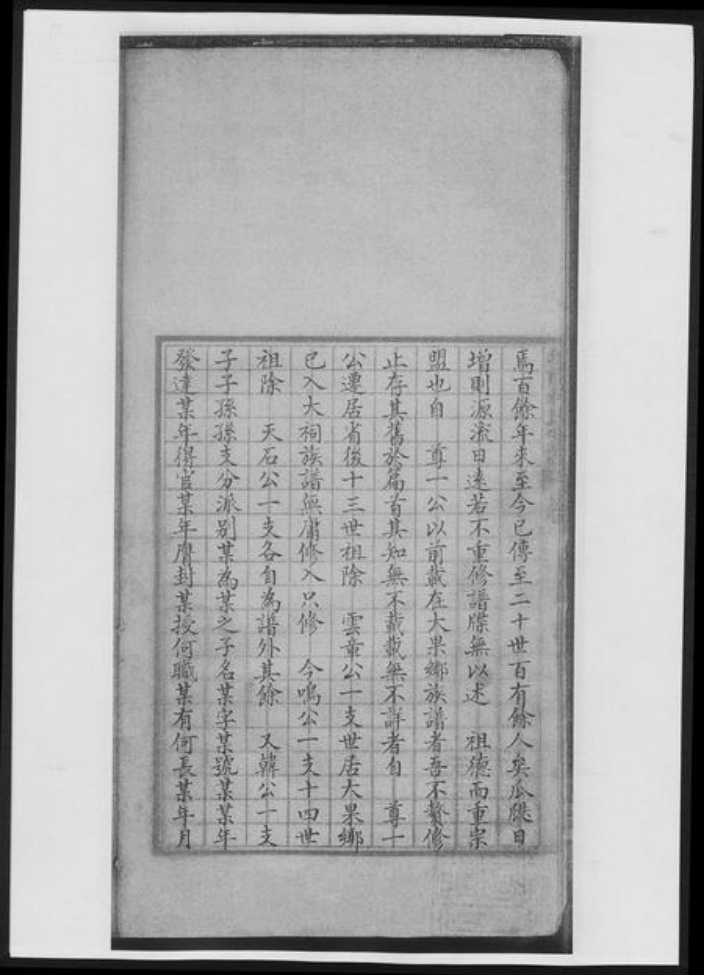 焉百餘年來至今已傳至二十世百有餘人矣瓜瓞日
增則源流日遠若不重修譜牒無以述 祖德而重宗
盟也自 尊一公以前載在大果鄉族譜者吾不贅修
止存其舊於篇首其知無不載載無不詳者自 尊一
公遷居省後十三世祖除 雲章公一支世居大果鄉
已入大祠族譜無庸修入只修 今鳴公一支十四世
祖除 天石公一支各自為譜外其餘 又韓公一支
子子孫孫支分派別某為某之子名某字某號某某年
發達某年得官某年膺封某授何職某有何長某年月